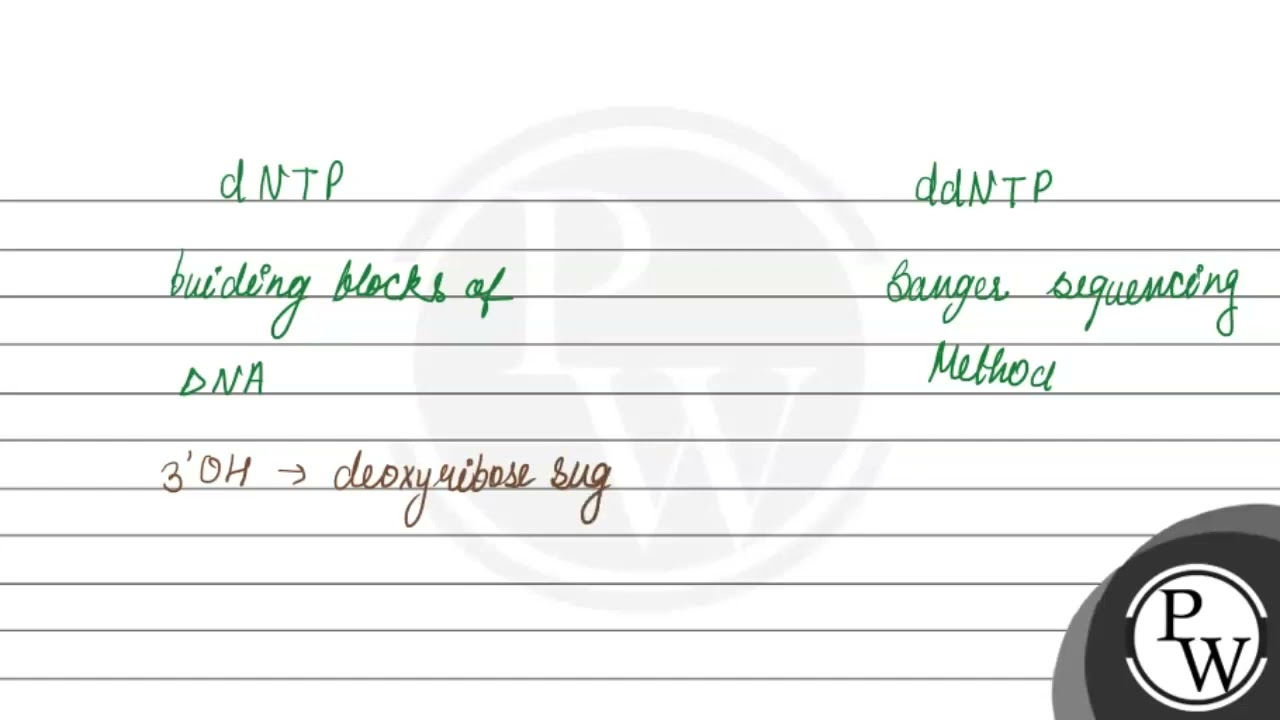 dNTP ddNTP
buiding blocks of Sanger sequencing
DNA Method
3'OH → deoxyribose sug
PW
PW